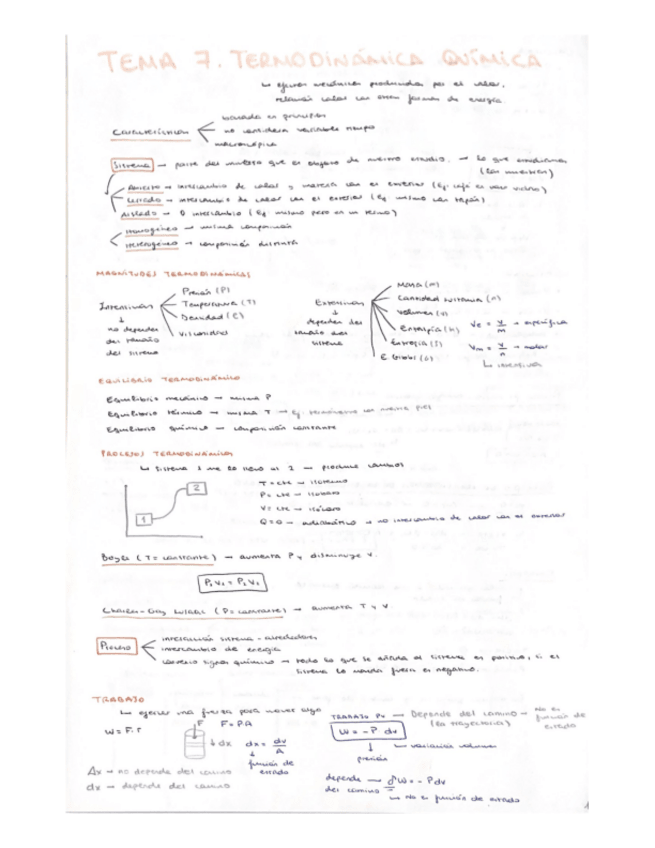 TEMA 7. TERMODINÁMICA QUÍMICA
↳ ejercer mecánica producida por el calor,
relaciona calor con otras formas de energía
Características
basada en principios
no considera variables tiempo
macroscópica
Sistema → parte del universo que es objeto de nuestro estudio. → lo que estudiamos
(la muestra)
Abierto → intercambio de calor y materia con el exterior (Ej: café en vaso vidrio)
Cerrado → intercambio de calor con el exterior (Ej: mismo con tapón)
Aislado → 0 intercambio (Ej: mismo pero en un termo)
Homogéneo → misma composición
Heterogéneo → composición distinta
MAGNITUDES TERMODINÁMICAS
Intensivas
↓
no dependen
del tamaño
del sistema
Presión (P)
Temperatura (T)
Densidad (ρ)
Viscosidad
Extensivas
↓
dependen del
tamaño del
sistema
Masa (m)
Cantidad sustancia (n)
Volumen (V)
Entalpía (H)
Entropía (S)
E. Gibbs (G)
Ve = V/m → específico
Vm = V/n → molar
↳ intensiva
EQUILIBRIO TERMODINÁMICO
Equilibrio mecánico → misma P
Equilibrio térmico → misma T → Ej: termómetro con nuestra piel
Equilibrio químico → composición constante
PROCESOS TERMODINÁMICOS
↳ Sistema 1 me lo llevo al 2 → produce cambios
1
2
T = cte → isotermo
P = cte → isóbaro
V = cte → isócoro
Q = 0 → adiabático → no intercambio de calor con el exterior
Boyle (T = constante) → aumenta P y disminuye V.
P₁V₁ = P₂V₂
Charles-Gay Lussac (P = constante) → aumenta T y V
Proceso
interacción sistema - alrededores
intercambio de energía
convenio signos químico → todo lo que se añada al sistema es positivo, si el
sistema lo manda fuera es negativo.
TRABAJO
↳ ejercer una fuerza para mover algo
W = F·r
F
F = P·A
↓ dx
dx = dV/A
↓
función de
estado
Δx → no depende del camino
dx → depende del camino
TRABAJO PV → Depende del camino → No es
(la trayectoria)
función de
estado
W = -P dV
↳ variación volumen
↓
presión
depende
del camino
→ δW = -PdV
↳ No es función de estado